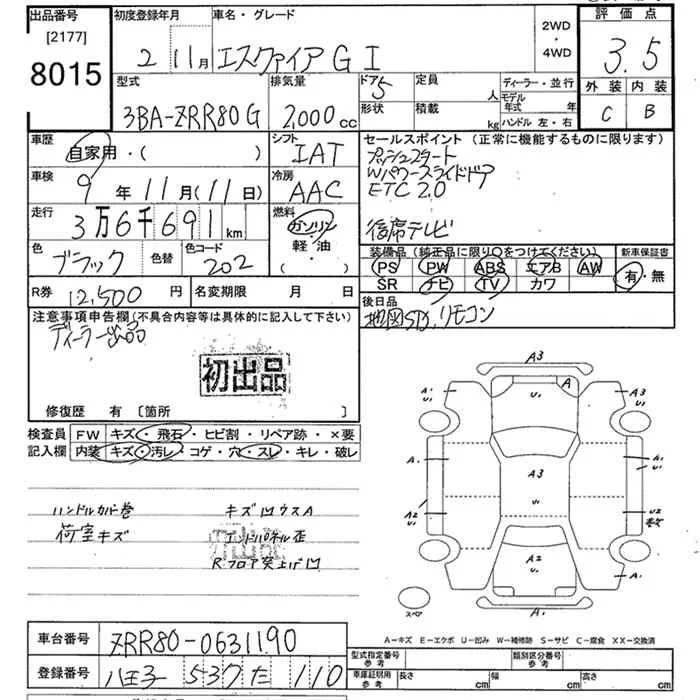 出品番号
[2177]
8015
初度登録年月
2 11月
車名・グレード
エスクァイア G I
2WD
・
4WD
評価点
3.5
外装 内装
C B
型式
3BA-ZRR80G
排気量
2,000cc
ドア 5
形状
定員 人
積載 kg
ディーラー・並行
モデル年式 年
ハンドル 左・右
車歴
自家用・( )
シフト
IAT
車検
9年11月(11日)
冷房
AAC
走行
3万6千691km
燃料
ガソリン
軽・油
( )
色
ブラック
色替
色コード
202
セールスポイント(正常に機能するものに限ります)
プッシュスタート
Wパワースライドドア
ETC 2.0
後席テレビ
装備品(純正品に限り○をつけてください)
PS PW ABS エアB AW
SR ナビ TV カワ
新車保証書
有・無
R券 12,500円
名変期限 月 日
後日品
地図SD,リモコン
注意事項申告欄(不具合内容等は具体的に記入して下さい)
ディーラー出品
初出品
修復歴 有 〔箇所 〕
検査員記入欄
FW キズ・飛石・ヒビ割・リペア跡・×要
内装 キズ・汚レ・コゲ・穴・スレ・キレ・破レ
ハンドルカバー巻
荷室キズ
キズ凹ウスA
エンドパネル歪
Rフロア突上ゲ凹
A3
U1
A
A1
U1
A3
U1
A1
A1
U1
A3
U1
A2
U1
U2
A2
U1
A1
A1
スペア
A-キズ E-エクボ U-凹み W-補修跡 S-サビ C-腐食 XX-交換済
車台番号
ZRR80-0631190
登録番号
八王子 537 た 110
型式指定番号
参考
類別区分番号
参考
車庫証明用
参考
長さ cm
幅 cm
高さ cm